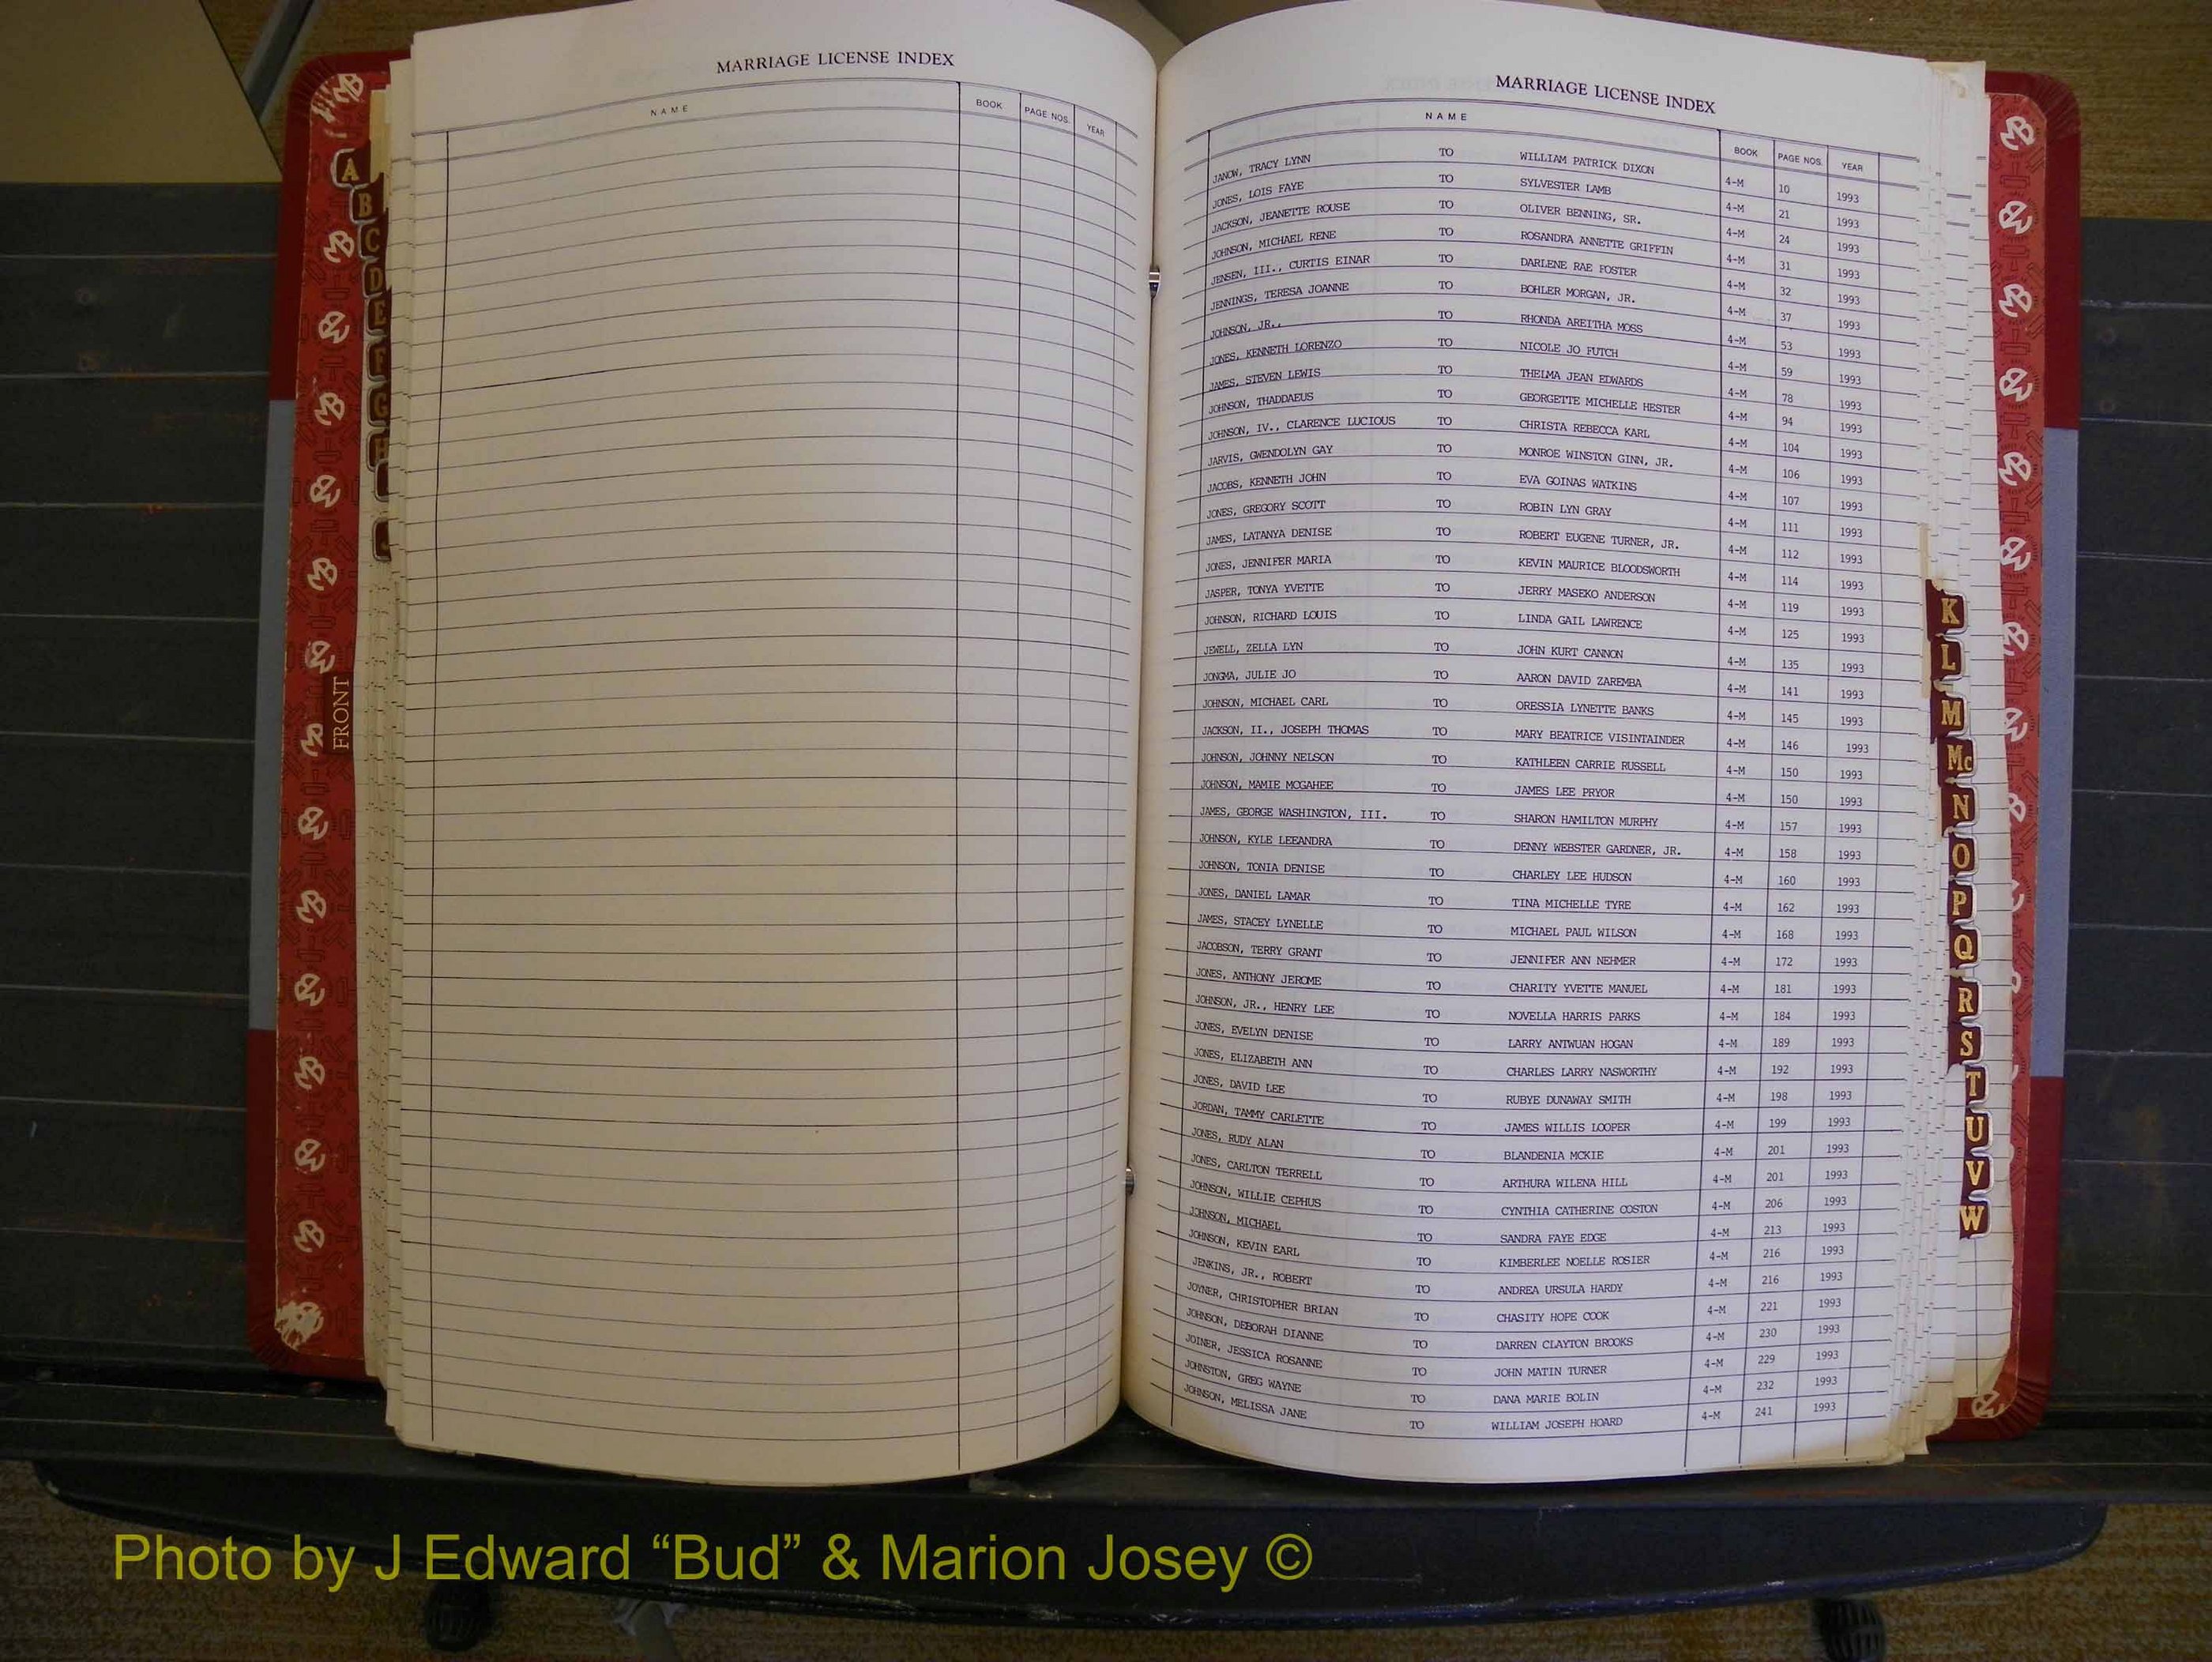 MARRIAGE LICENSE INDEX
NAME BOOK PAGE NOS. YEAR
A
B
C
D
E
F
G
H
FRONT
MARRIAGE LICENSE INDEX
NAME BOOK PAGE NOS. YEAR
JANOW, TRACY LYNN TO WILLIAM PATRICK DIXON 4-M 10 1993
JONES, LOIS FAYE TO SYLVESTER LAMB 4-M 21 1993
JACKSON, JEANETTE ROUSE TO OLIVER BENNING, SR. 4-M 24 1993
JOHNSON, MICHAEL RENE TO ROSANDRA ANNETTE GRIFFIN 4-M 31 1993
JENSEN, III., CURTIS EINAR TO DARLENE RAE FOSTER 4-M 32 1993
JENNINGS, TERESA JOANNE TO BOHLER MORGAN, JR. 4-M 37 1993
JOHNSON, JR., TO RHONDA AREITHA MOSS 4-M 53 1993
JONES, KENNETH LORENZO TO NICOLE JO FUTCH 4-M 59 1993
JAMES, STEVEN LEWIS TO THELMA JEAN EDWARDS 4-M 78 1993
JOHNSON, THADDAEUS TO GEORGETTE MICHELLE HESTER 4-M 94 1993
JOHNSON, IV., CLARENCE LUCIOUS TO CHRISTA REBECCA KARL 4-M 104 1993
JARVIS, GWENDOLYN GAY TO MONROE WINSTON GINN, JR. 4-M 106 1993
JACOBS, KENNETH JOHN TO EVA GOINAS WATKINS 4-M 107 1993
JONES, GREGORY SCOTT TO ROBIN LYN GRAY 4-M 111 1993
JAMES, LATANYA DENISE TO ROBERT EUGENE TURNER, JR. 4-M 112 1993
JONES, JENNIFER MARIA TO KEVIN MAURICE BLOODSWORTH 4-M 114 1993
JASPER, TONYA YVETTE TO JERRY MASEKO ANDERSON 4-M 119 1993
JOHNSON, RICHARD LOUIS TO LINDA GAIL LAWRENCE 4-M 125 1993
JEWELL, ZELLA LYN TO JOHN KURT CANNON 4-M 135 1993
JONGMA, JULIE JO TO AARON DAVID ZAREMBA 4-M 141 1993
JOHNSON, MICHAEL CARL TO ORESSIA LYNETTE BANKS 4-M 145 1993
JACKSON, II., JOSEPH THOMAS TO MARY BEATRICE VISINTAINDER 4-M 146 1993
JOHNSON, JOHNNY NELSON TO KATHLEEN CARRIE RUSSELL 4-M 150 1993
JOHNSON, MAMIE MCGAHEE TO JAMES LEE PRYOR 4-M 150 1993
JAMES, GEORGE WASHINGTON, III. TO SHARON HAMILTON MURPHY 4-M 157 1993
JOHNSON, KYLE LEEANDRA TO DENNY WEBSTER GARDNER, JR. 4-M 158 1993
JOHNSON, TONIA DENISE TO CHARLEY LEE HUDSON 4-M 160 1993
JONES, DANIEL LAMAR TO TINA MICHELLE TYRE 4-M 162 1993
JAMES, STACEY LYNELLE TO MICHAEL PAUL WILSON 4-M 168 1993
JACOBSON, TERRY GRANT TO JENNIFER ANN NEHMER 4-M 172 1993
JONES, ANTHONY JEROME TO CHARITY YVETTE MANUEL 4-M 181 1993
JOHNSON, JR., HENRY LEE TO NOVELLA HARRIS PARKS 4-M 184 1993
JONES, EVELYN DENISE TO LARRY ANTWUAN HOGAN 4-M 189 1993
JONES, ELIZABETH ANN TO CHARLES LARRY NASWORTHY 4-M 192 1993
JONES, DAVID LEE TO RUBYE DUNAWAY SMITH 4-M 198 1993
JORDAN, TAMMY CARLETTE TO JAMES WILLIS LOOPER 4-M 199 1993
JONES, RUDY ALAN TO BLANDENIA MCKIE 4-M 201 1993
JONES, CARLTON TERRELL TO ARTHURA WILENA HILL 4-M 201 1993
JOHNSON, WILLIE CEPHUS TO CYNTHIA CATHERINE COSTON 4-M 206 1993
JOHNSON, MICHAEL TO SANDRA FAYE EDGE 4-M 213 1993
JOHNSON, KEVIN EARL TO KIMBERLEE NOELLE ROSIER 4-M 216 1993
JENKINS, JR., ROBERT TO ANDREA URSULA HARDY 4-M 216 1993
JOYNER, CHRISTOPHER BRIAN TO CHASITY HOPE COOK 4-M 221 1993
JOHNSON, DEBORAH DIANNE TO DARREN CLAYTON BROOKS 4-M 230 1993
JOINER, JESSICA ROSANNE TO JOHN MATIN TURNER 4-M 229 1993
JOHNSTON, GREG WAYNE TO DANA MARIE BOLIN 4-M 232 1993
JOHNSON, MELISSA JANE TO WILLIAM JOSEPH HOARD 4-M 241 1993
K
L
M
Mc
N
O
P
Q
R
S
T
U
V
W
Photo by J Edward “Bud” & Marion Josey ©